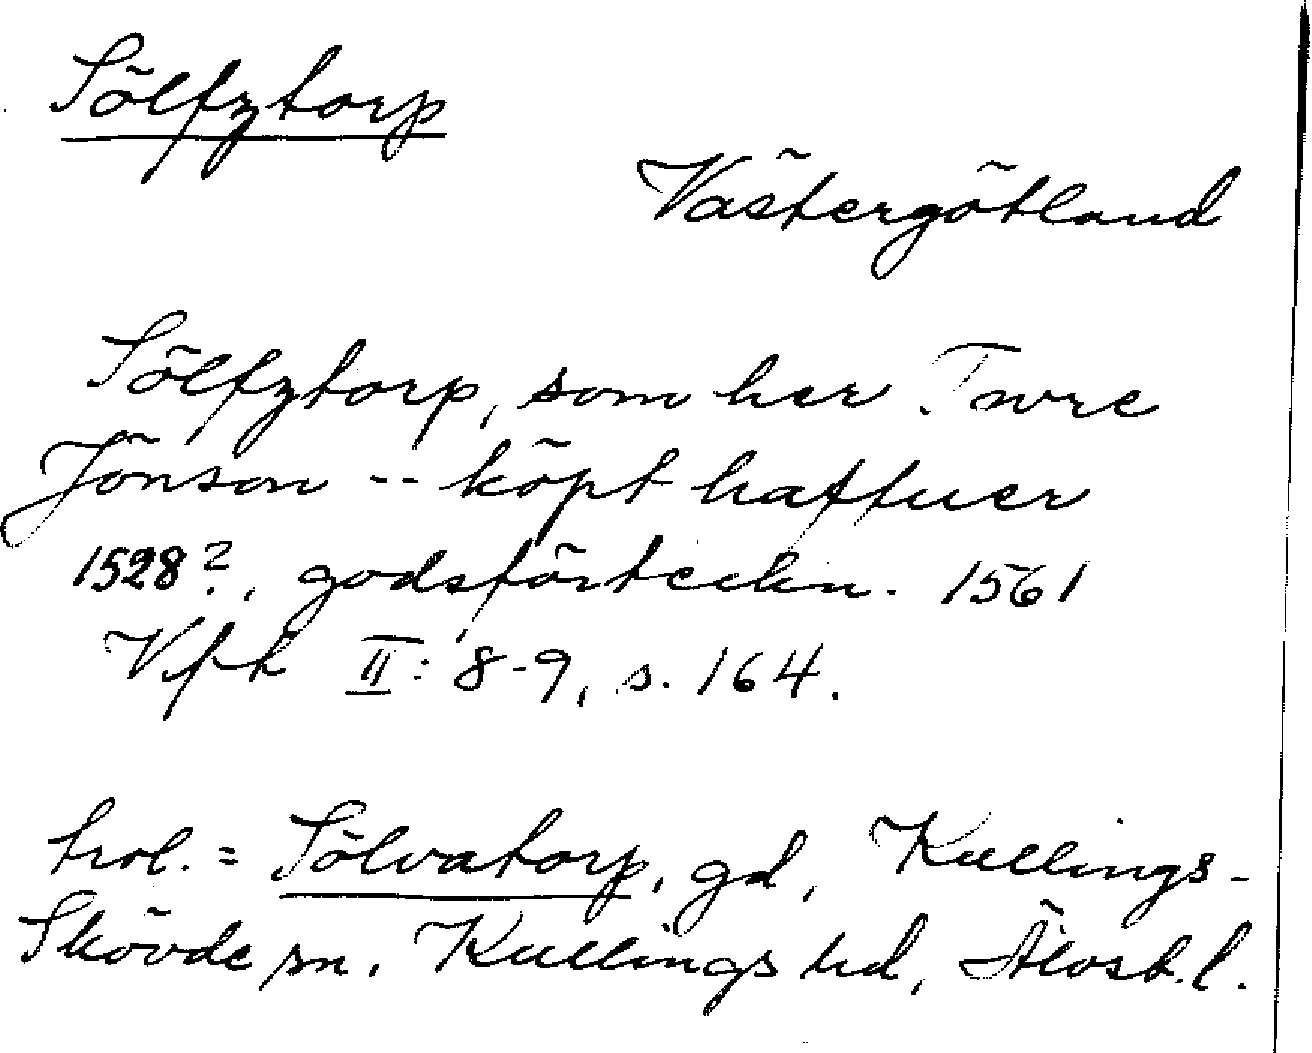 Sölfztorp
Västergötland
Sölfztorp, som her Twre
Jönson -- köpt haffuer
1528?, godsförteckn. 1561
Vfh II: 8-9, s. 164.
trol. = Sölvatorp, gd, Kullings-
Skövde sn. Kullings hd, Älvsb. l.